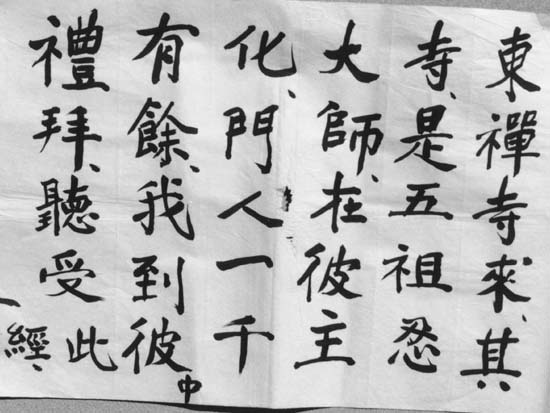 東禪寺來、其
寺、是五祖忍
大師、在彼主
化、門人一千
有餘、我到彼中
禮拜、聽受此
經、